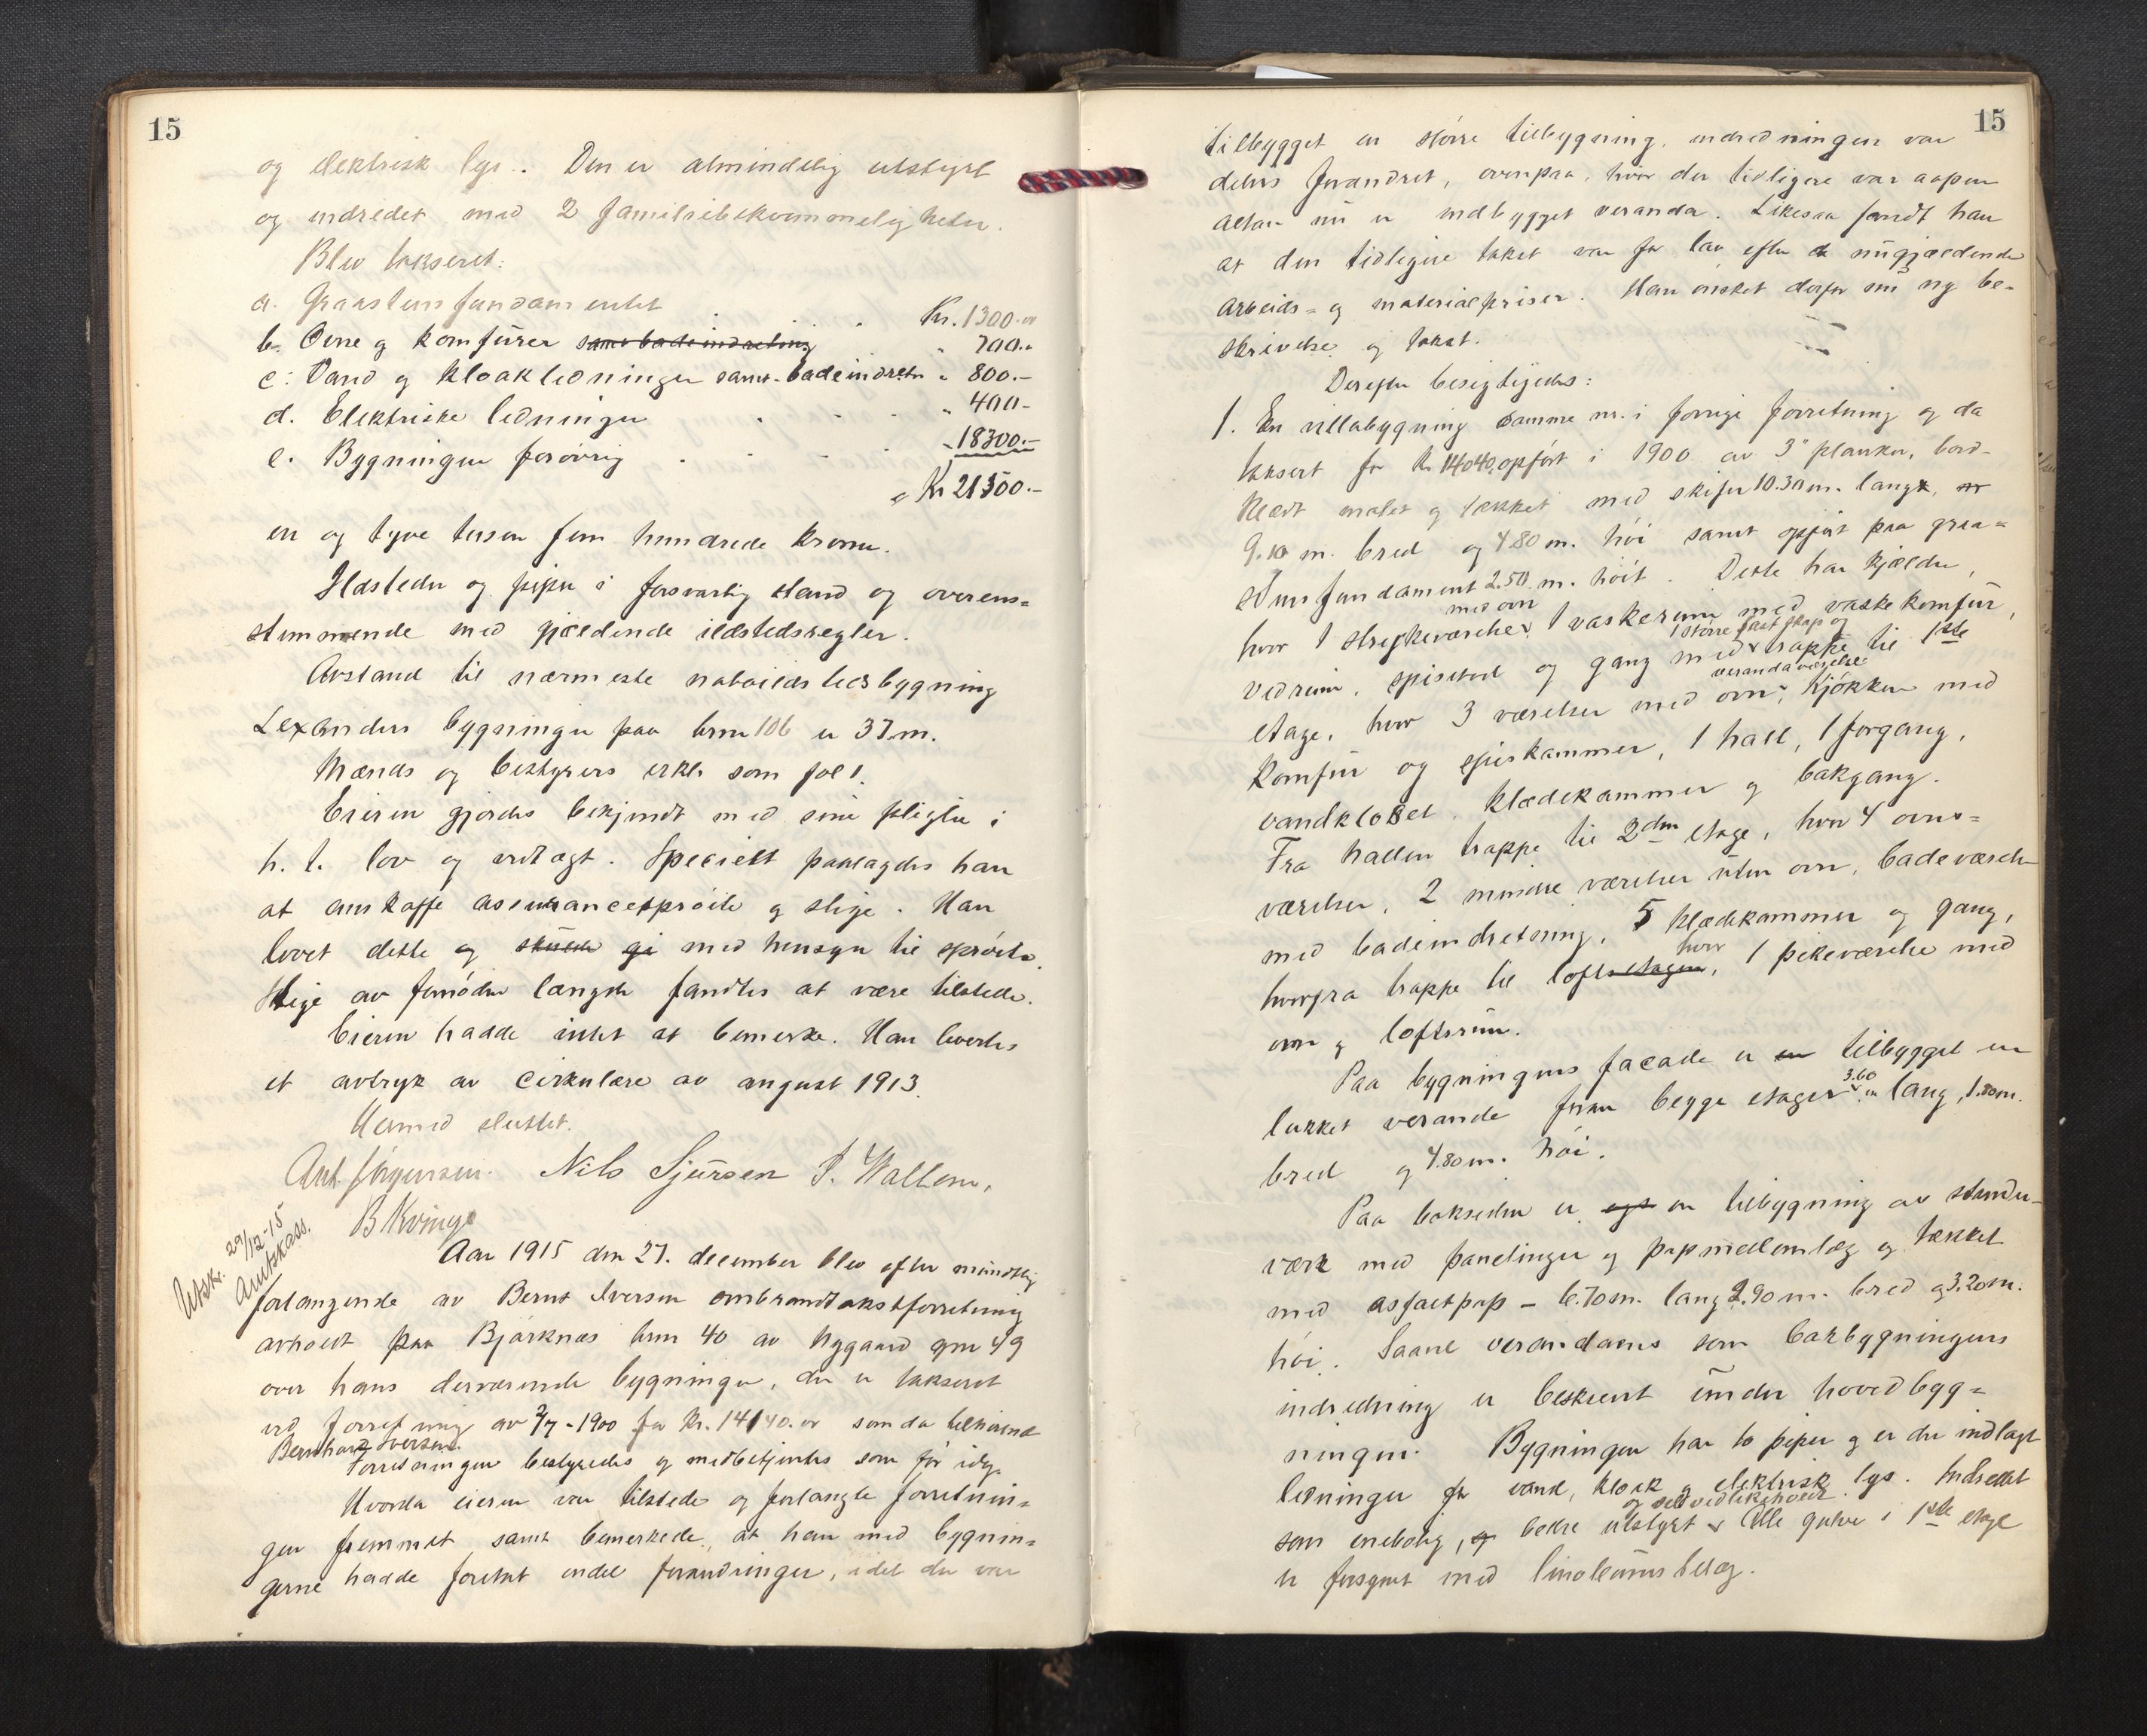 15
og elektrisk lys. Den er almindelig utstyrt
og indredet med 2 familiebekvemmeligheter.
Blev taksert:
a. Graastensfundamentet Kr. 1300.-
b. Ovne og komfürer samt badeindretning " 700.-
c: Vand og kloakledninger samt badeindretn " 800.-
d. Elektriske ledninger " 400-
e. Bygningen forøvrig " 18300.-
Kr 21500.-
en og tyve tusen fem hundrede kroner.
Ildsteder og piper i forsvarlig stand og overens=
stemmende med gjældende ildstedsregler.
Avstand til nærmeste naboildstedsbygning
Lexanders bygninger paa brnr 106 er 37 m.
Mænds og bestyrers erkl. som fol 1.
Eieren gjordes bekjendt med sine pligter i
h. t. lov og vedtægt. Specielt paalagdes han
at anskaffe assurancesprøite og stige. Han
lovet dette og gi med hensyn til sprøite.
Stige av fornøden længde fandtes at være tilstede.
Eieren hadde intet at bemerke. Han levertes
et avtryk av cirkulære av august 1913.
Hermed sluttet.
Ant Jørgensen. Nils Sjursen P. Hallem.
B Kvinge
Utskr. 29/12-15
Amtskass.
Aar 1915 den 27. december blev efter mundtlig
forlangende av Bernt Iversen ombrandtakstforretning
avholdt paa Bjørknæs brnr 40 av Nygaard gnr 49
over hans derværende bygninger, der er taksert
ved forretning av 2/7-1900 for kr. 14140.- som da tilhørende
Bernhard Iversen.
Forretningen bestyredes og medbetjentes som før idag.
Hvorda eieren var tilstede og forlangte forretnin=
gen fremmet samt bemerkede, at han med bygnin=
gerne hadde foretat endel forandringer, idet der var
15
tilbygget en større tilbygning, indredningen var
delvis forandret, ovenpaa, hvor der tidligere var aapen
altan nu er indbygget veranda. Likesaa fandt han
at den tidligere takst var for lav efter nugjældende
arbeids- og materialpriser. Han ønsket derfor nu ny be=
skrivelse og takst.
Derefter besigtigedes:
1. En villabygning samme nr. i forrige forretning og da
taksert for kr 14040, opført i 1900 av 3" planker, bord-
klædt malet og tækket med skifer 10.30 m. lang,
9.10 m. bred og 4.80 m. høi samt opført paa graa=
stensfundament 2.50 m. høit. Dette har kjælder,
med ovn
hvor 1 strykeværelse, 1 vaskerum med vaskekomfür,
1 større fast skap og
vedrum, spisebod og gang med trappe til 1ste
verandaværelse
etage, hvor 3 værelser med ovn, kjøkken med
komfür og spiskammer, 1 hall, 1 forgang,
vandkloset, klædekammer og bakgang.
Fra hallen trappe til 2den etage, hvor 4 ovns=
værelser, 2 mindre værelser uten ovn, badeværelse
med badeindretning, 5 klædekammer og gang,
hvor
hvorfra trappe til loftsetagen, 1 pikeværelse med
ovn og loftsrüm.
Paa bygningens facade er en tilbygget en
lukket veranda foran begge etager 3.60 m lang, 1.80 m.
bred og 4.80 m. høi.
Paa baksiden er ogs en tilbygning av stender-
værk med panelinger og papmellemlæg og tækket
med asfaltpap – 6.70 m. lang 2.90 m. bred og 3.20 m.
høi. Saavel verandaens som bakbygningens
indredning er beskrevet ünder hovedbyg=
ningen. Bygningen har to piper og er der indlagt
ledninger for vand, kloak og elektrisk lys. Indredet
og vel vedlikeholdt
som enebolig, og bedre utstyrt. Alle gulve i 1ste etage
er forsynt med linoleümsbelæg.